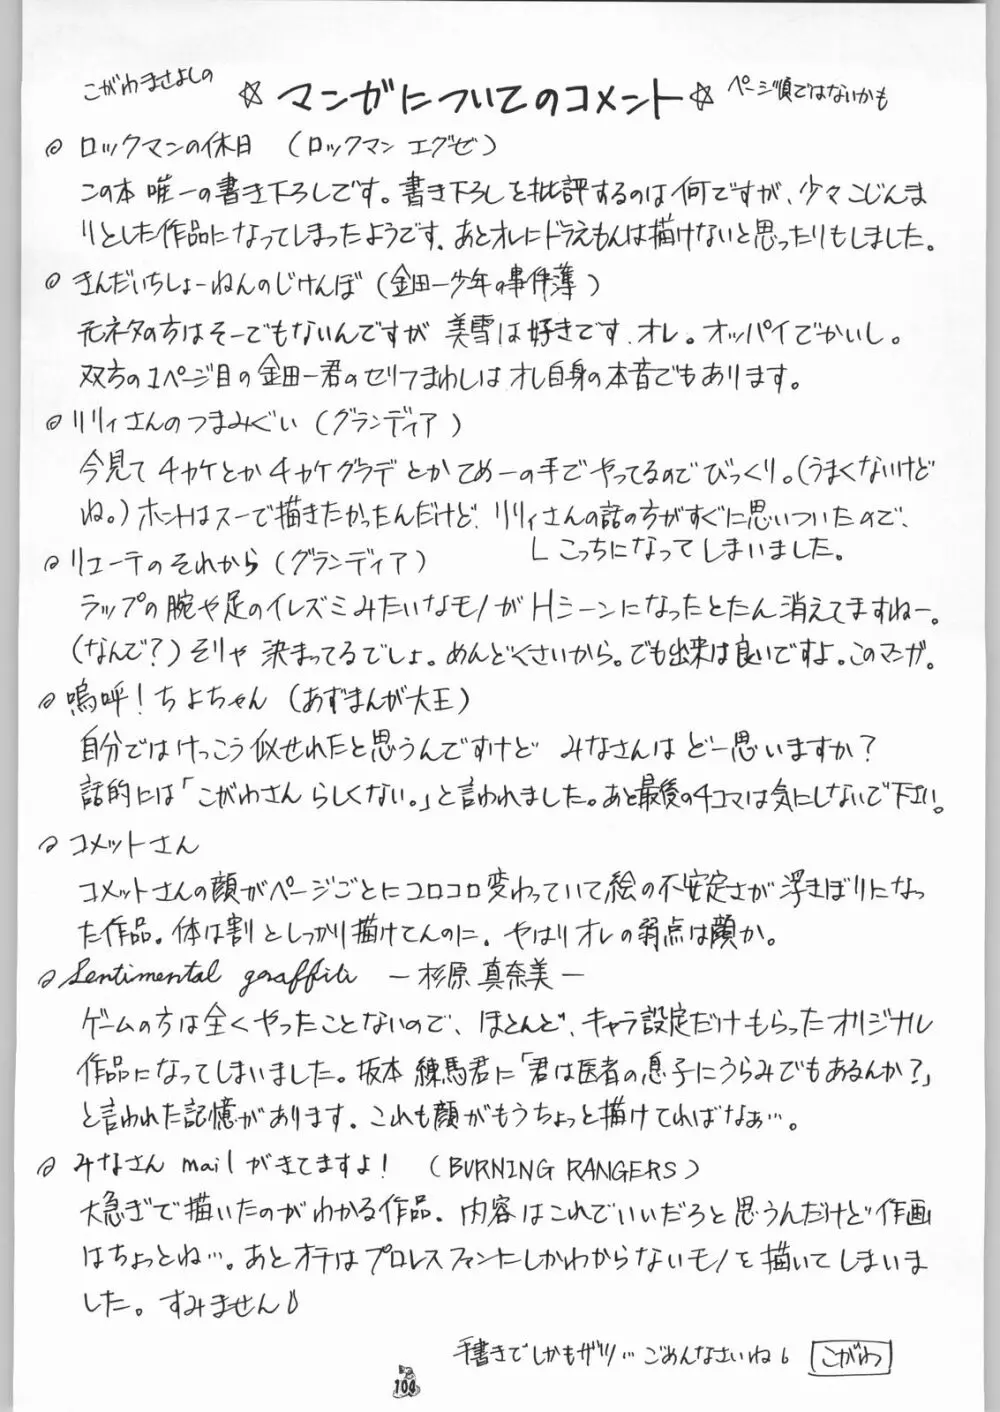 こがわまさよしの
☆マンガについてのコメント☆
ページ順ではないかも
ロックマンの休日 (ロックマン エグゼ)
この本 唯一の書き下ろしです。書き下ろしを批評するのは何ですが、少々こじんま
りとした作品になってしまったようです。あとオレにドラえもんは描けないと思ったりもしました。
きんだいちしょーねんのじけんぼ(金田一少年の事件簿)
元ネタの方はそーでもないんですが 美雪は好きです、オレ。オッパイでかいし。
双方の1ページ目の金田一君のセリフまわしはオレ自身の本音でもあります。
リリィさんのつまみぐい(グランディア)
今見て チカケとか チカケグラデとか てめーの手でやってるのでびっくり。(うまくないけど
ね。)ホントはスーで描きたかったんだけど、リリィさんの話の方がすぐに思いついたので、
こっちになってしまいました。
リエーテのそれから(グランディア)
ラップの腕や足のイレズミみたいなモノがHシーンになったとたん消えてますねー。
(なんで?)そりゃ 決まってるでしょ。めんどくさいから。でも出来は良いですよ。このマンガ。
嗚呼!ちよちゃん(あずまんが大王)
自分ではけっこう似せれたと思うんですけど みなさんはどー思いますか?
話的には「こがわさんらしくない。」と言われました。あと最後の4コマは気にしないで下さい。
コメットさん
コメットさんの顔がページごとにコロコロ変わっていて絵の不安定さが浮きぼりになっ
た作品。体は割としっかり描けてんのに、やはりオレの弱点は顔か。
Sentimental graffiti —杉原 真奈美—
ゲームの方は全くやったことないので、ほとんど、キャラ設定だけもらったオリジナル
作品になってしまいました。坂本 練馬君に「君は医者の息子にうらみでもあるんか?」
と言われた記憶があります。これも顔がもうちょっと描けてればなぁ…。
みなさん mail がきてますよ! (BURNING RANGERS)
大急ぎで描いたのがわかる作品。内容はこれでいいだろと思うんだけど作画
はちょっとね…。あとオチはプロレスファンにしかわからないモノを描いてしまいま
した。すみません♪
手書きでしかもザツ…ごめんなさいね。 こがわ
104